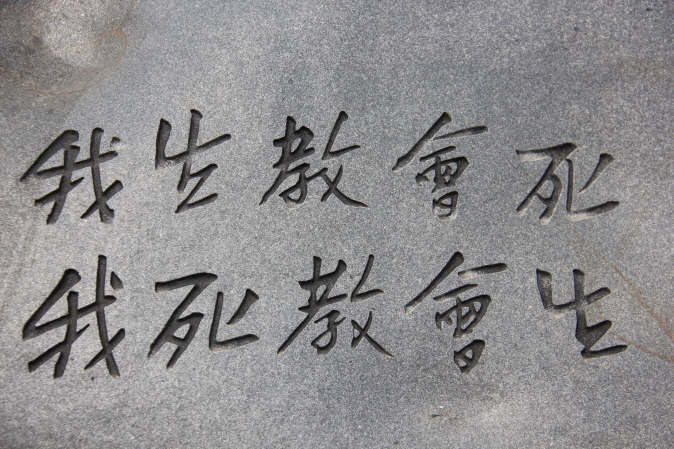 我生教會死
我死教會生